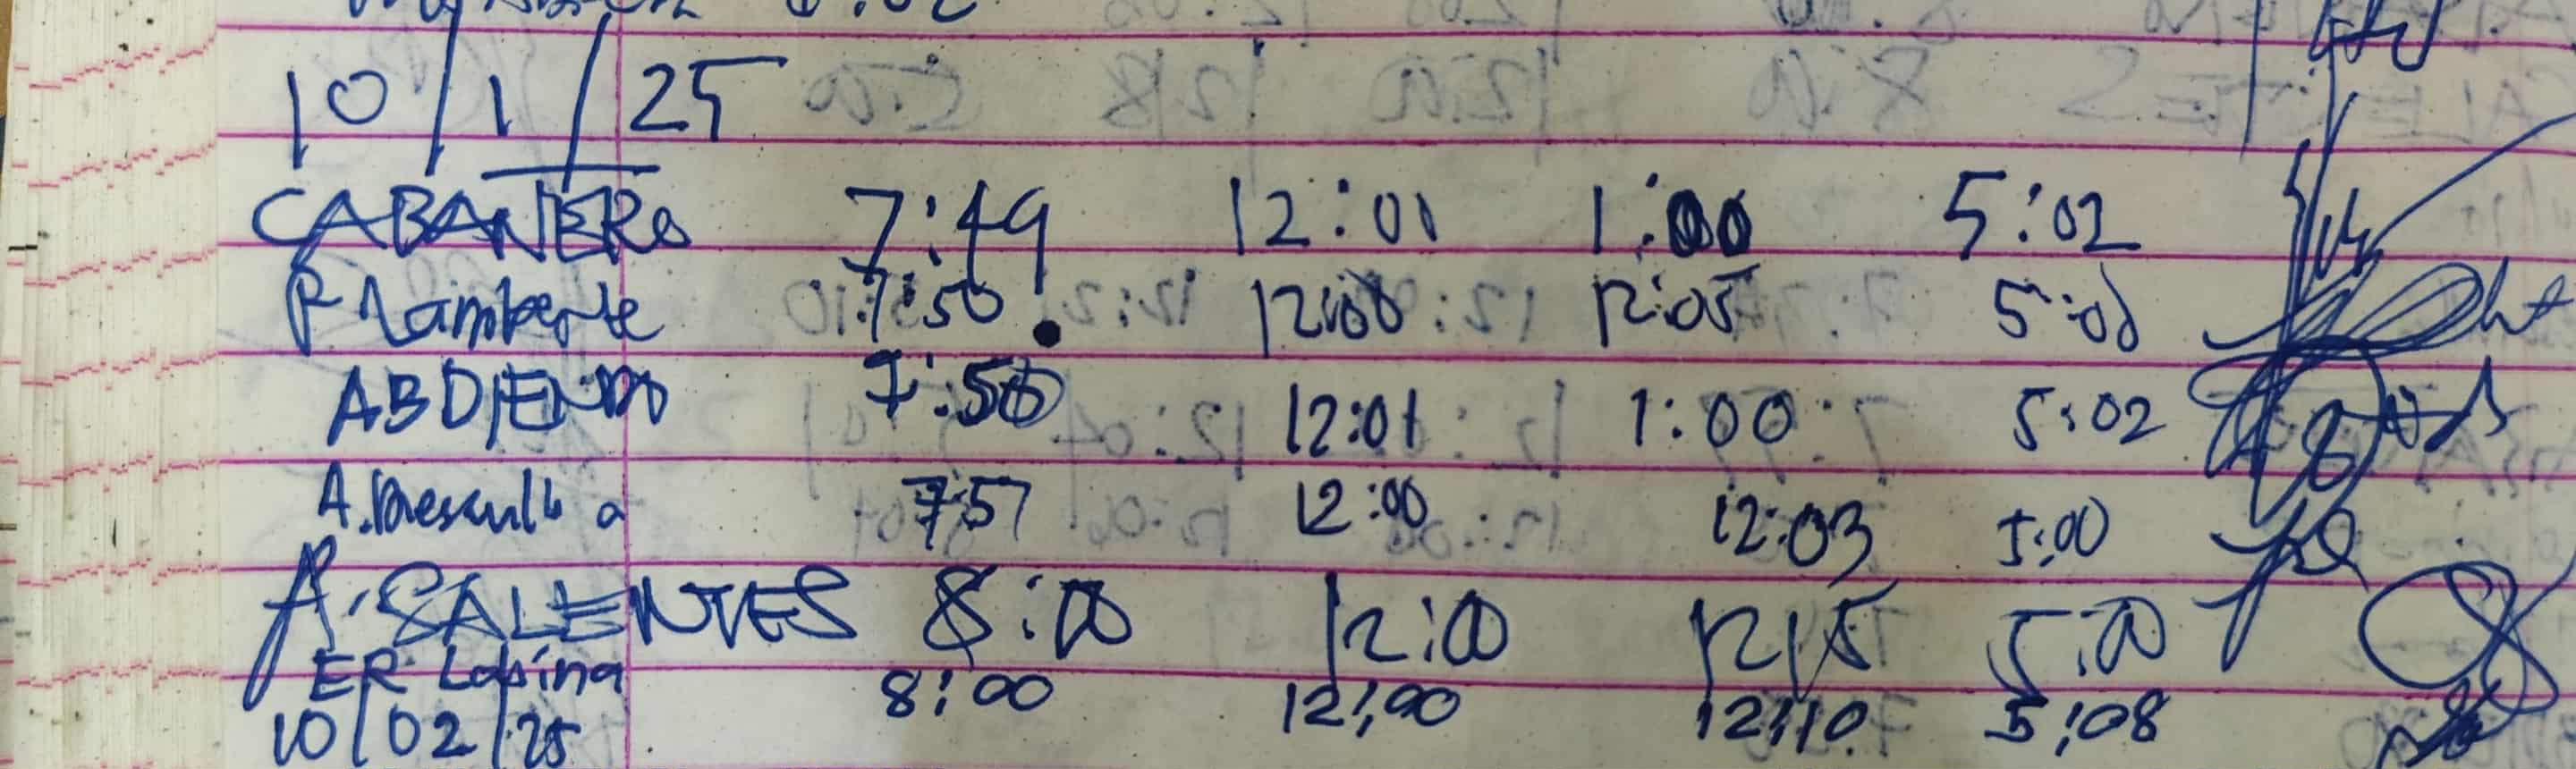 10/1/25
CABAÑERo 7:49 12:01 1:00 5:02
P Lamberte 7:50 12:00 12:05 5:01
ABDIENDO 7:50 12:01 1:00 5:02
A. 7:57 12:00 12:03 5:00
A. SALENTES 8:00 12:00 12:15 5:00
ER Lapina 8:00 12:00 12:10 5:08
10/02/25